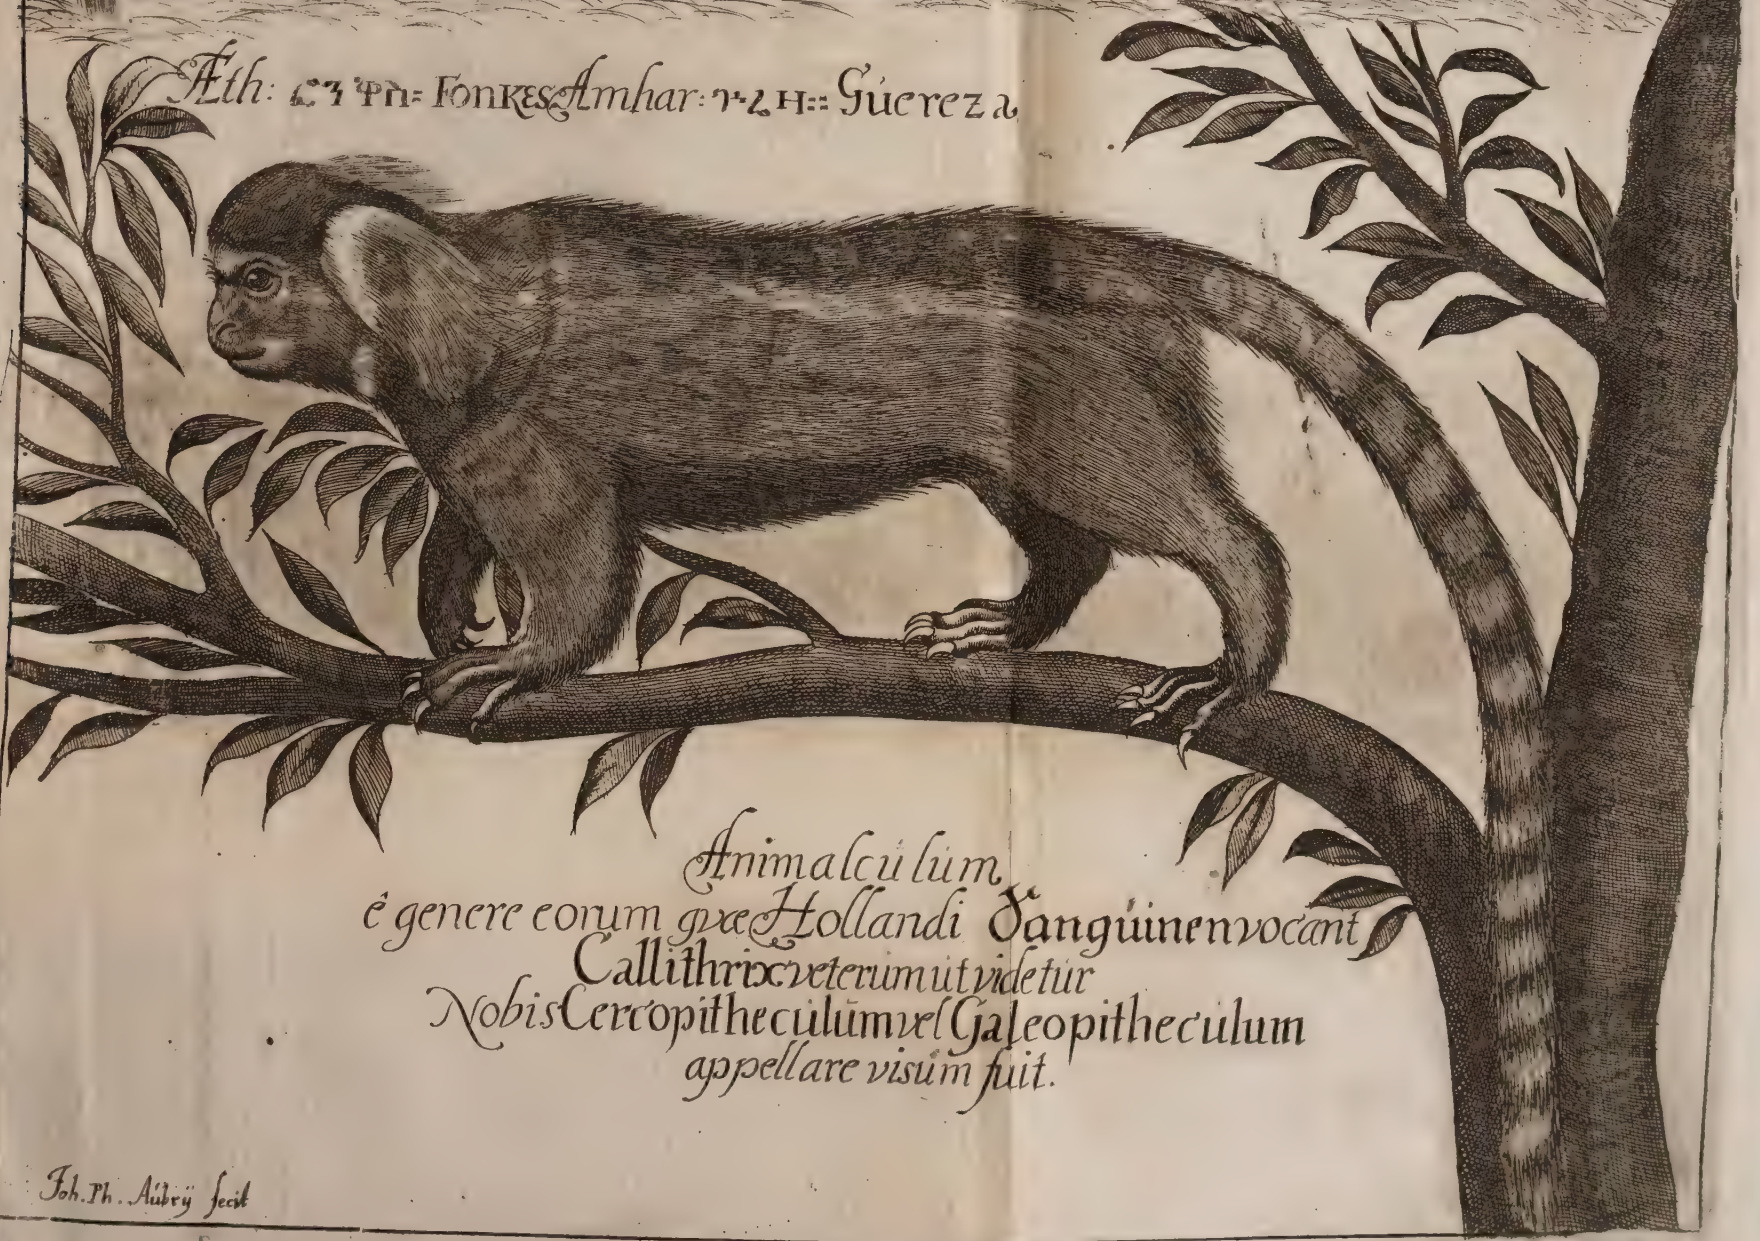 Æth: ፎንቀስ፡ FONKES Amhar: ጉሬዛ፡፡ Gúereza
Animalcúlúm
ê genere eorum qvæ Hollandi Sangúinen vocant
Callithrix veterúm út videtúr
Nobis Cercopithecúlúm vel Galeopithecúlúm
appellare visúm fuit.
Joh. Ph. Aúbrÿ fecit